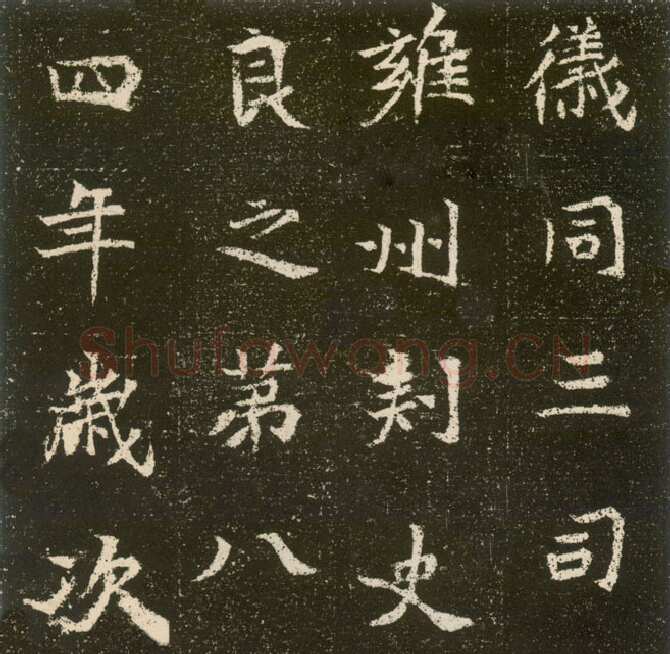 儀同三司
雍州刾史
良之苐八
四年歲次
Shufawang.CN